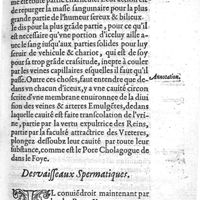 de repurger la masse sanguinaire pour la plus
grande partie de l'humeur sereux & bilieux
Ie dis pour la plus grãde partie, pour ce qu'il
est necessaire qu'vne portion d'iceluy aille a-
uec le sang iusqu'aux parties solides pour luy
seruir de vehicule & chariot, qui est de soy
pour sa trop grãde crasitude, inepte à couler
par les veines capillaires esquelles il faut qu'il
passe. Outre ces choses, faut entendre que de-
dans vn chacun d'iceux, y a vne cauité circõ
recouuerte d'vne membrane enuironnant de la diui
sion des veines & arteres Emulgétes, dedans
laquelle cauité est faite transcolation de l'vri-
ne, partie par la vertu expultrice des Reins,
partie par la faculté attractrice des Vreteres,
plongez dessouz leur cauité par toute leur
substance, comme est le Pore Cholagogue de
dans le Foye.
Annotation.
Des vaisseaux Spermatiques.
IL conuiẽdroit maintenant par